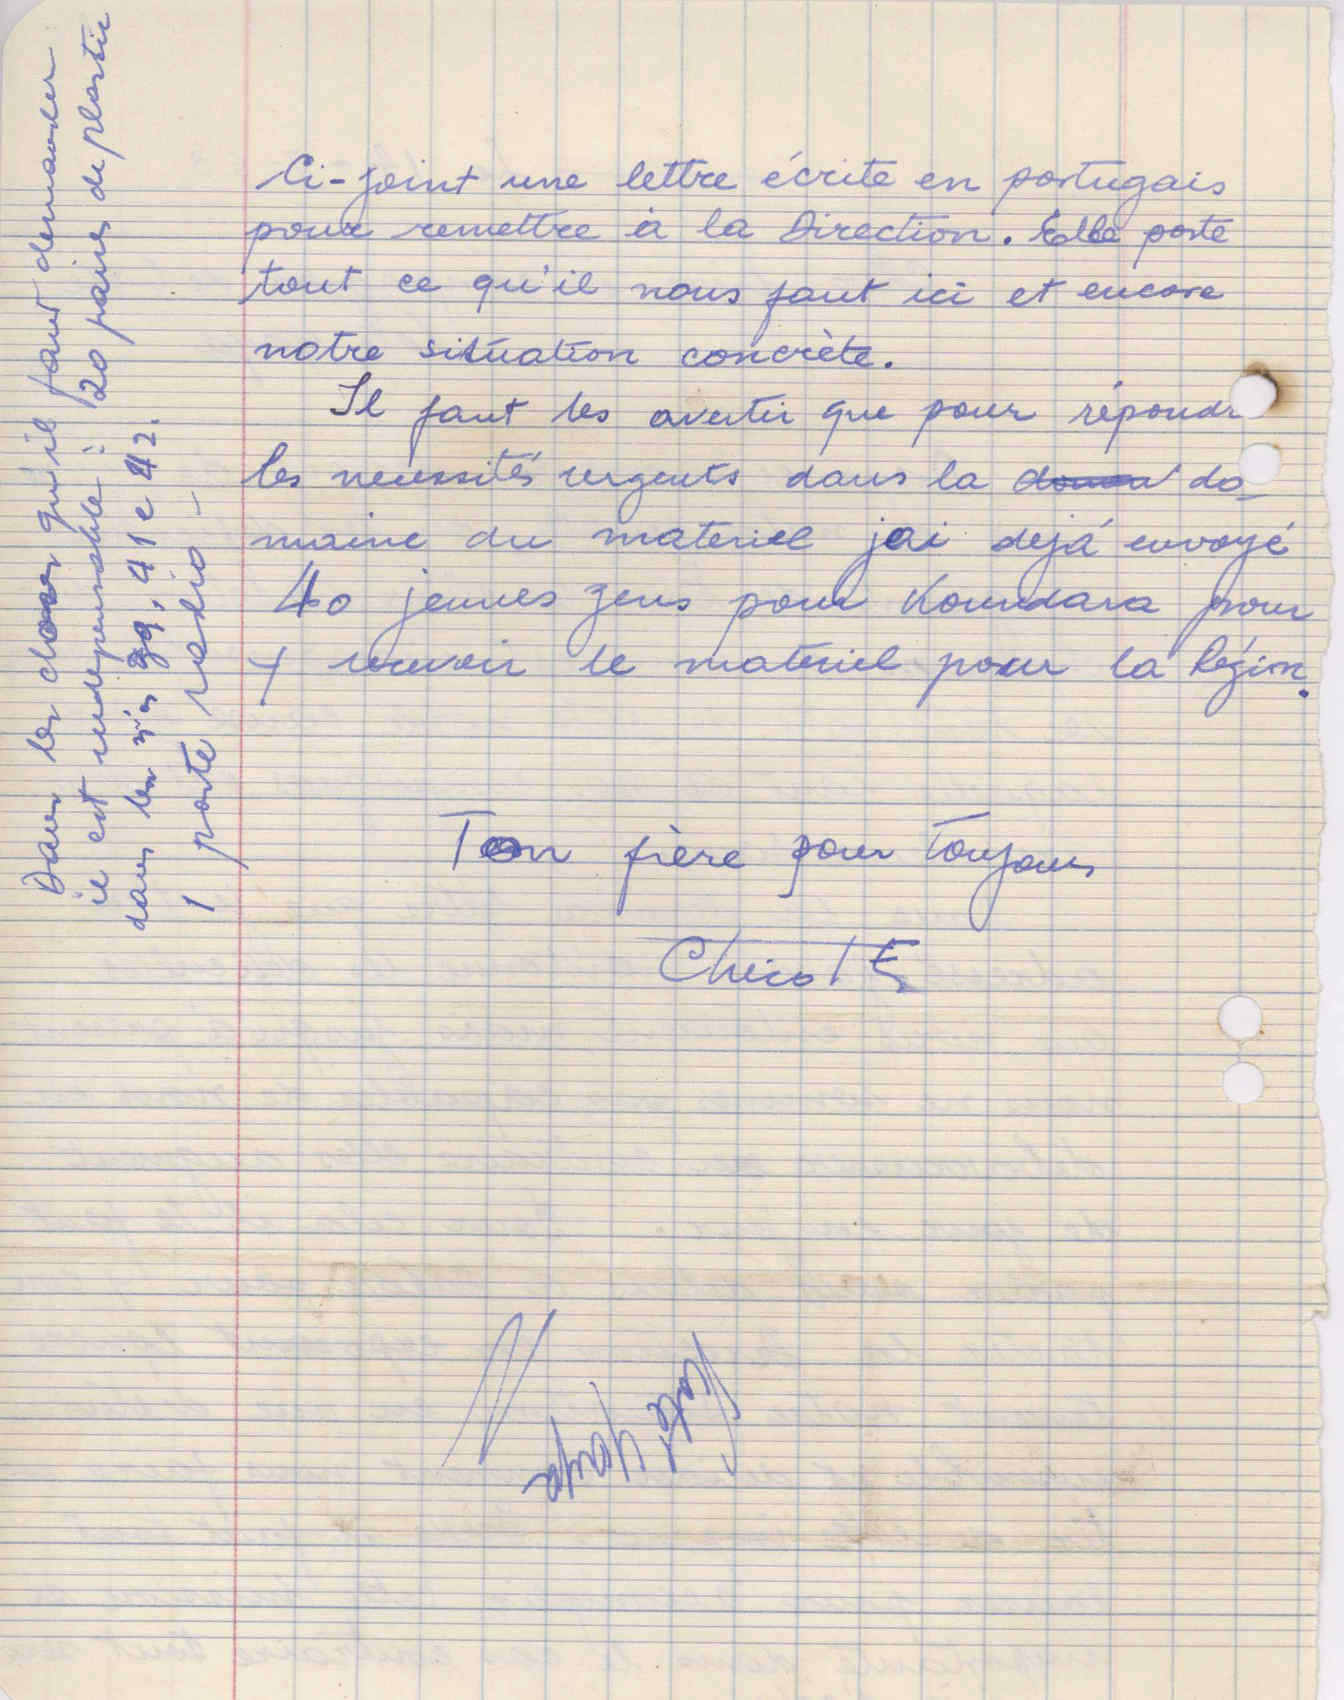 Ci-joint une lettre écrite en portugais
pour remettre à la Direction. Elle porte
tout ce qu'il nous faut ici et encore
notre situation concrète.
Il faut les avertir que pour répondr
les necessités urgents dans la do-
maine du materiel jai dejá envoyé
40 jeunes gens pour Koundara pour
y recevoir le matériel pour la Région.
Ton frère pour Toujours
Chico Té
Dans les choses qu'il faut demander
il est indispensable : 20 paires de plastic
dans les nºs 39, 41 e 42.
1 porte radio -